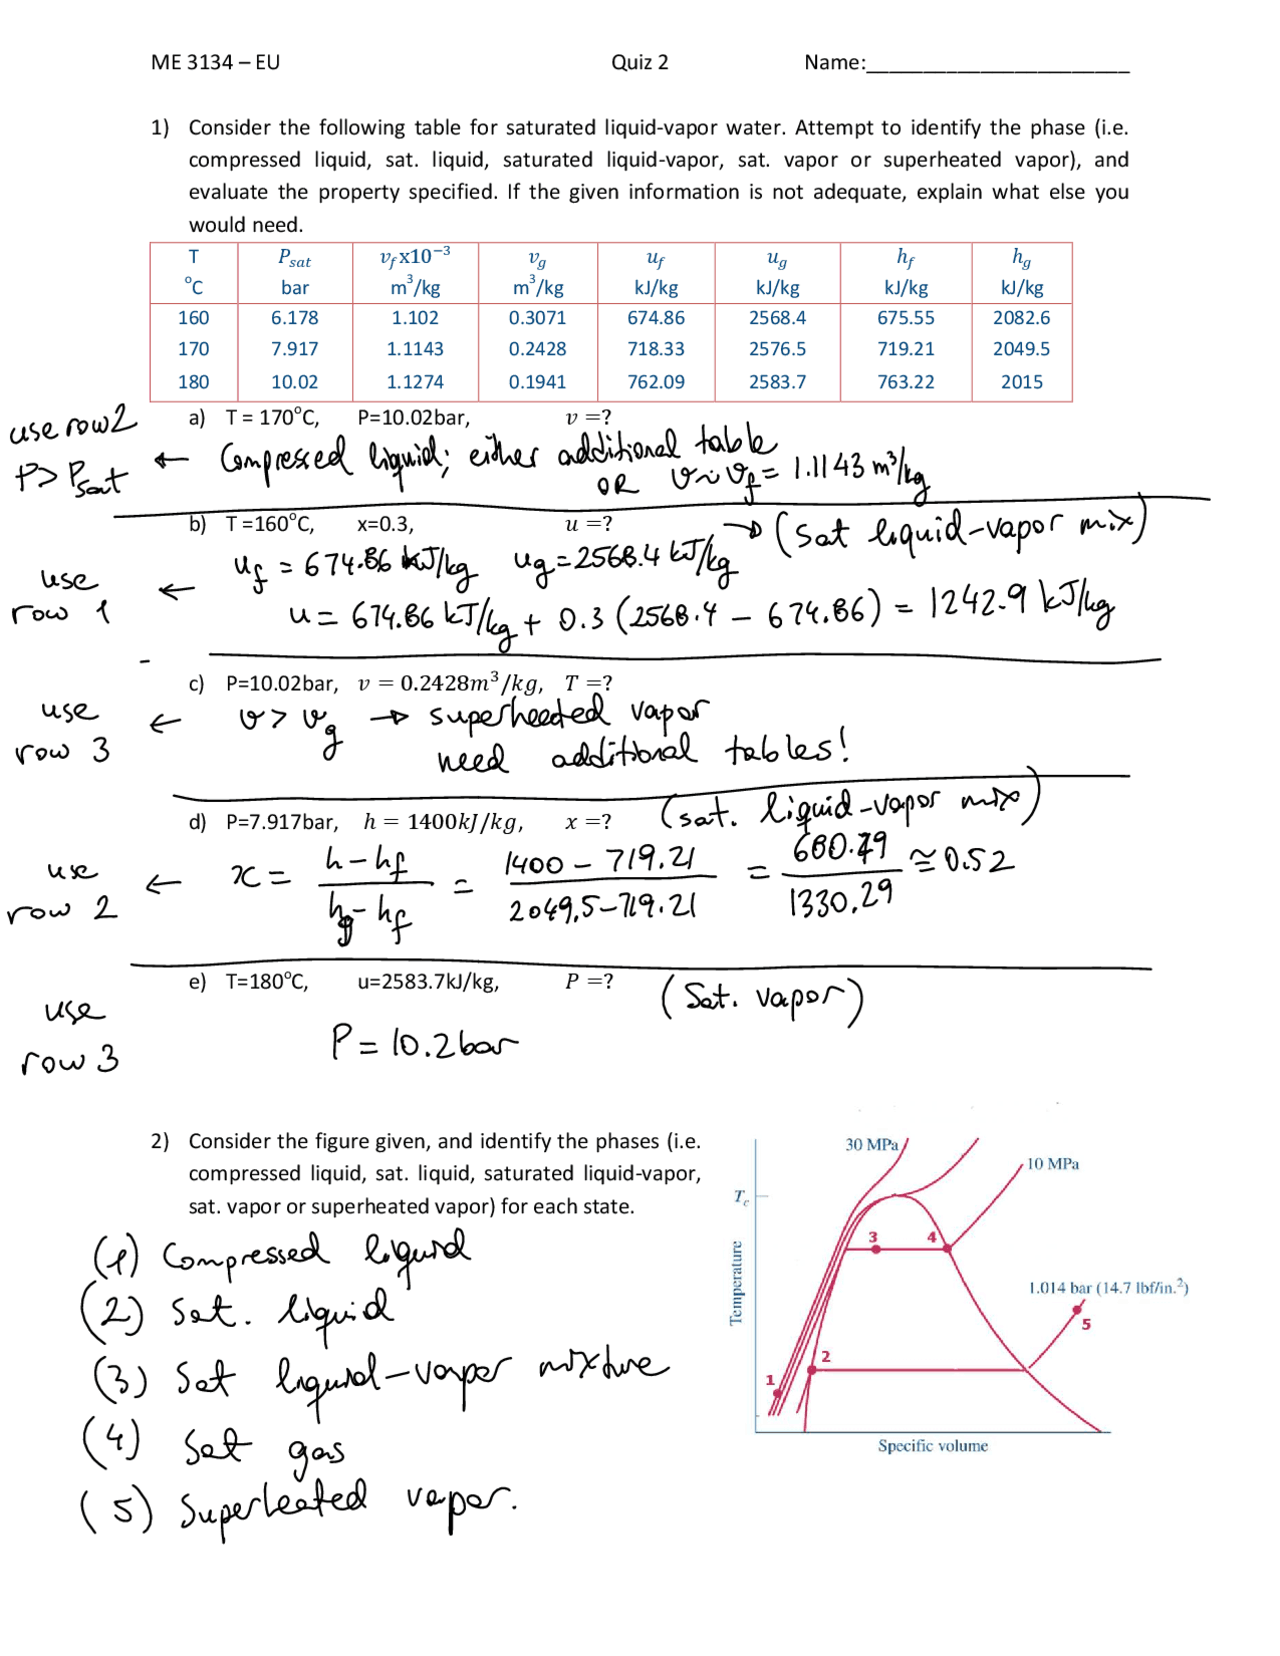 ME 3134 – EU Quiz 2 Name:________________________
1) Consider the following table for saturated liquid-vapor water. Attempt to identify the phase (i.e.
compressed liquid, sat. liquid, saturated liquid-vapor, sat. vapor or superheated vapor), and
evaluate the property specified. If the given information is not adequate, explain what else you
would need.
T P_sat v_f x10⁻³ v_g u_f u_g h_f h_g
°C bar m³/kg m³/kg kJ/kg kJ/kg kJ/kg kJ/kg
160 6.178 1.102 0.3071 674.86 2568.4 675.55 2082.6
170 7.917 1.1143 0.2428 718.33 2576.5 719.21 2049.5
180 10.02 1.1274 0.1941 762.09 2583.7 763.22 2015
a) T = 170°C, P=10.02bar, v =?
use row 2
P > P_sat ← Compressed liquid; either additional table
OR v ~ v_f = 1.1143 m³/kg
b) T =160°C, x=0.3, u =? → (sat liquid-vapor mix)
u_f = 674.86 kJ/kg u_g = 2568.4 kJ/kg
use row 1 ← u = 674.86 kJ/kg + 0.3 (2568.4 – 674.86) = 1242.9 kJ/kg
c) P=10.02bar, v = 0.2428m³/kg, T =?
use row 3 ← v > v_g → superheated vapor
need additional tables!
d) P=7.917bar, h = 1400kJ/kg, x =? (sat. liquid-vapor mix)
use row 2 ← x = (h – h_f)/(h_g – h_f) = (1400 – 719.21)/(2049.5 – 719.21) = 680.79/1330.29 ≅ 0.52
e) T=180°C, u=2583.7kJ/kg, P =? (Sat. vapor)
use row 3
P = 10.2 bar
2) Consider the figure given, and identify the phases (i.e.
compressed liquid, sat. liquid, saturated liquid-vapor,
sat. vapor or superheated vapor) for each state.
(1) Compressed liquid
(2) Sat. liquid
(3) Sat liquid-vapor mixture
(4) Sat gas
(5) Superheated vapor.
30 MPa
10 MPa
T_c
3 4
1.014 bar (14.7 lbf/in.²)
5
2
1
Temperature
Specific volume